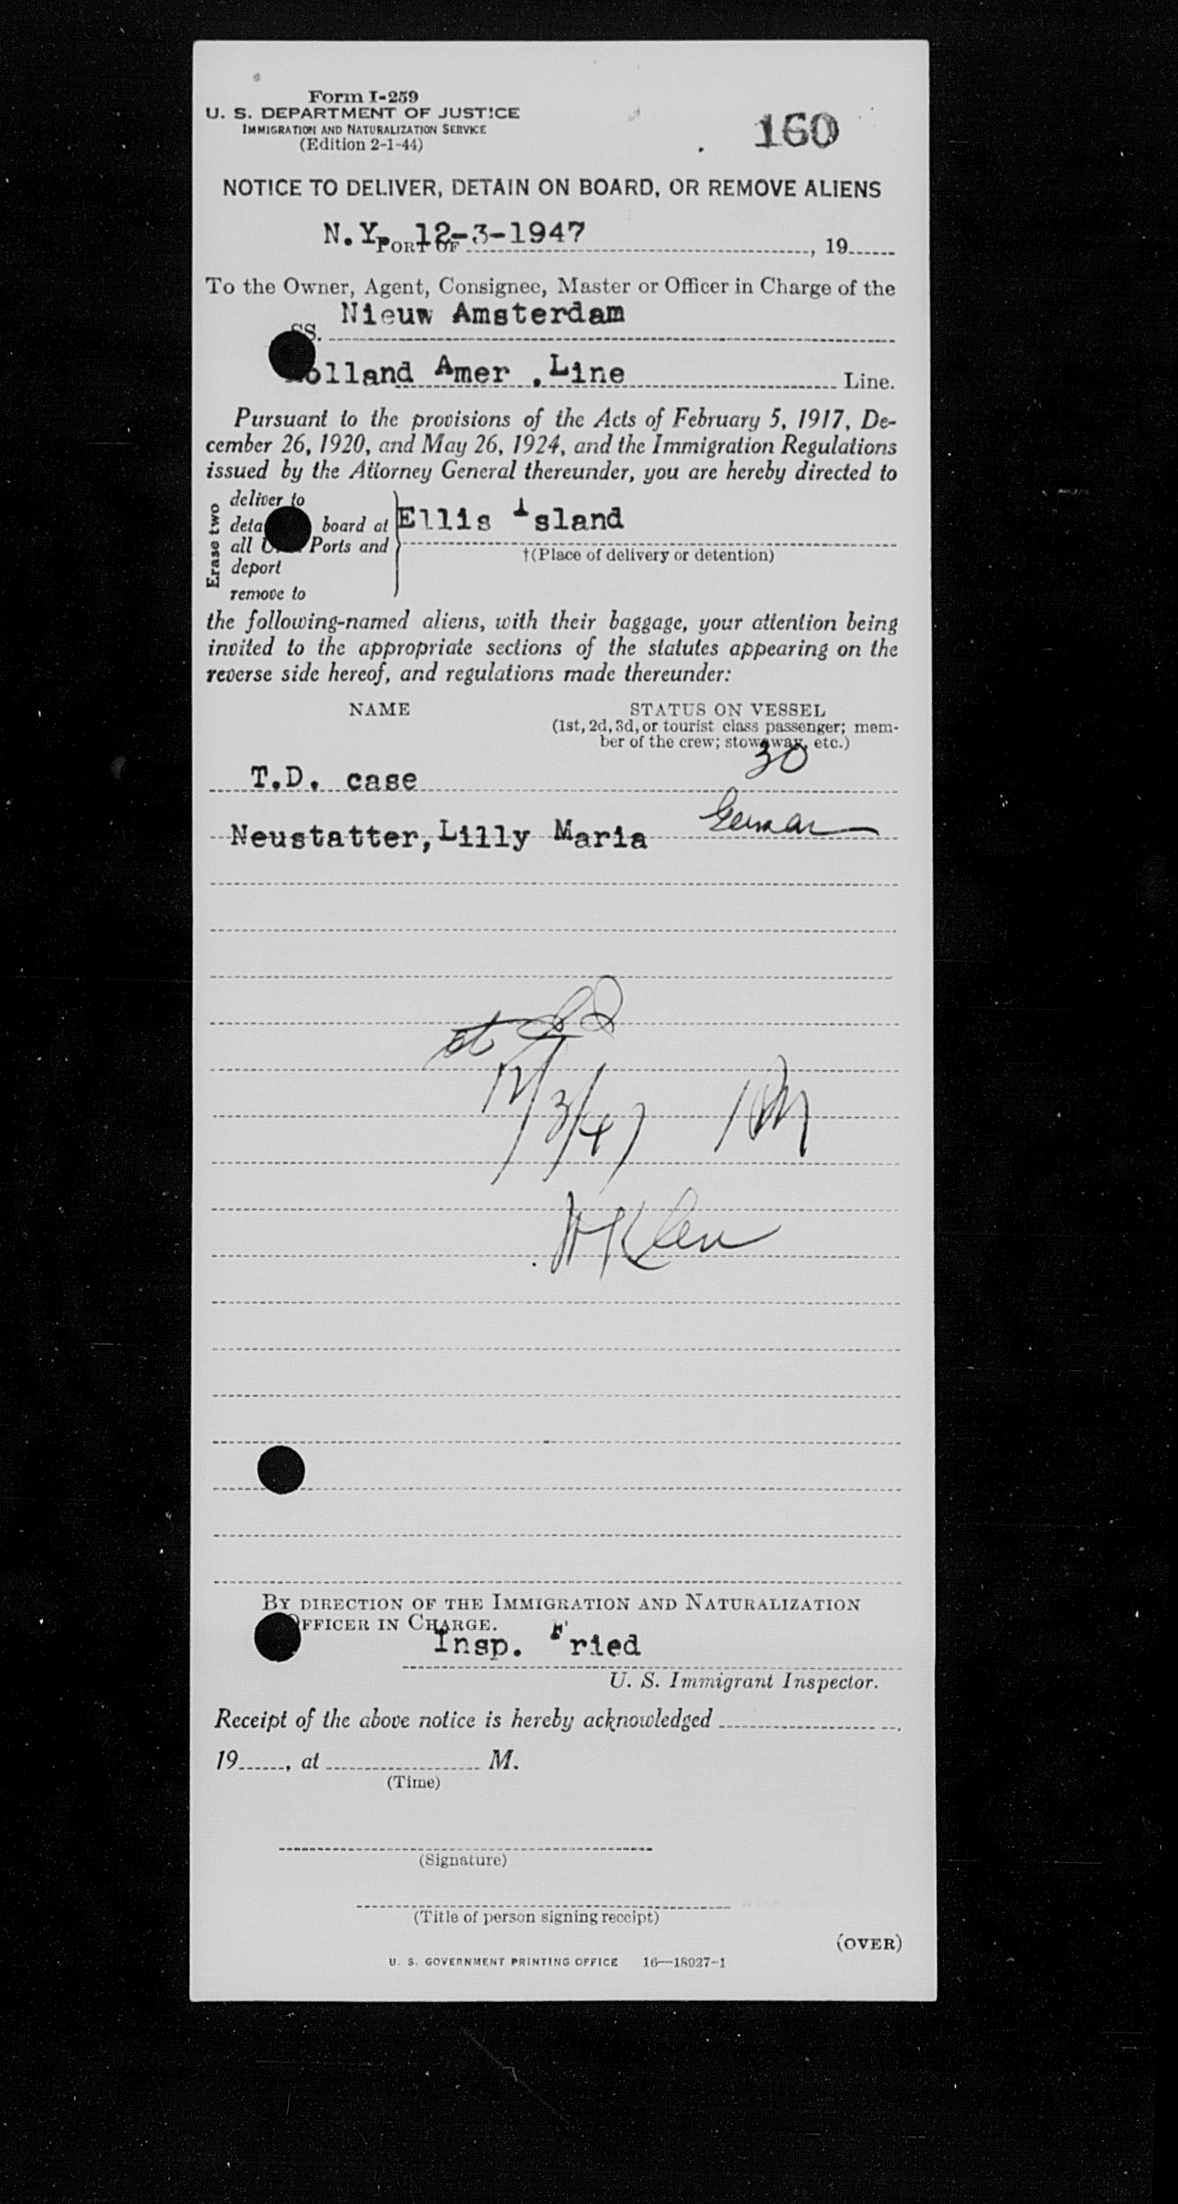 Form I-259
U. S. DEPARTMENT OF JUSTICE
IMMIGRATION AND NATURALIZATION SERVICE
(Edition 2-1-44)
160
NOTICE TO DELIVER, DETAIN ON BOARD, OR REMOVE ALIENS
N.Y. 12-3-1947
PORT OF , 19
To the Owner, Agent, Consignee, Master or Officer in Charge of the
SS. Nieuw Amsterdam
olland Amer .Line Line.
Pursuant to the provisions of the Acts of February 5, 1917, De-
cember 26, 1920, and May 26, 1924, and the Immigration Regulations
issued by the Attorney General thereunder, you are hereby directed to
Erase two
deliver to
deta board at Ellis Island
all U Ports and
†(Place of delivery or detention)
deport
remove to
the following-named aliens, with their baggage, your attention being
invited to the appropriate sections of the statutes appearing on the
reverse side hereof, and regulations made thereunder:
NAME STATUS ON VESSEL
(1st, 2d, 3d, or tourist class passenger; mem-
ber of the crew; stowaway, etc.)
30
T.D. case
Neustatter,Lilly Maria German
12/3/47
By direction of the Immigration and Naturalization
fficer in Charge.
Insp. Fried
U. S. Immigrant Inspector.
Receipt of the above notice is hereby acknowledged
19 , at M.
(Time)
(Signature)
(Title of person signing receipt)
(OVER)
U. S. GOVERNMENT PRINTING OFFICE 16—18027-1